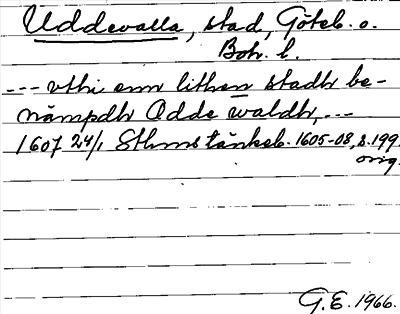 Uddevalla, stad, Göteb. o.
Boh. l.
--- vthi enn lithen stadh be-
nämpdh Odde waldh, ---
1607 24/1 Sthms tänkeb. 1605-08, s. 199.
orig.
G.E. 1966.